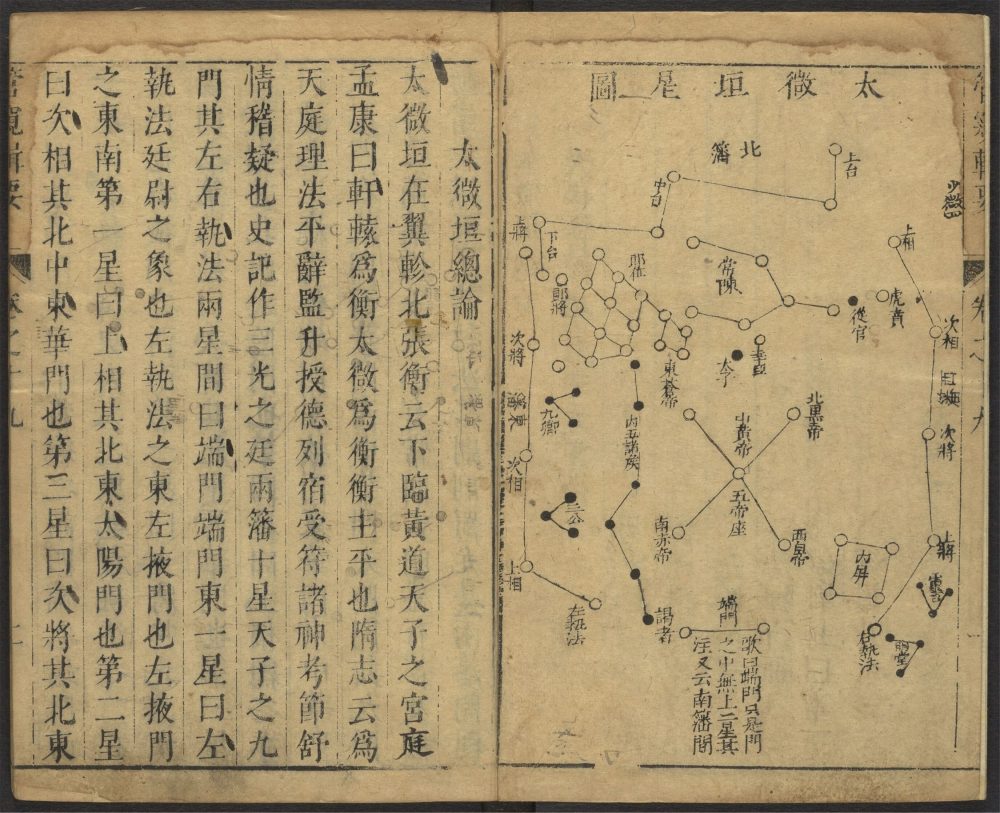 管窺輯要
卷之十九
太微垣星圖
北籓
上台
中台
下台
上將
次將
次相
上相
左執法
郎位
郎將
常陳
東蒼帝
幸臣
太子
從官
虎賁
少微
上相
次相
次將
上將
右執法
九卿
三公
內五諸侯
北黑帝
中黃帝
五帝座
南赤帝
西白帝
內屏
靈臺
明堂
謁者
端門
歌曰端門只是門
之中無上二星其
注又云南籓開
太微垣總論
太微垣在翼軫北張衡云下臨黃道天子之宮庭
孟康曰軒轅爲衡太微爲衡衡主平也隋志云爲
天庭理法平辭監升授德列宿受符諸神考節舒
情稽疑也史記作三光之廷兩藩十星天子之九
門其左右執法兩星間曰端門端門東一星曰左
執法廷尉之象也左執法之東左掖門也左掖門
之東南第一星曰上相其北東太陽門也第二星
曰次相其北中東華門也第三星曰次將其北東
管窺輯要
卷之十九
二